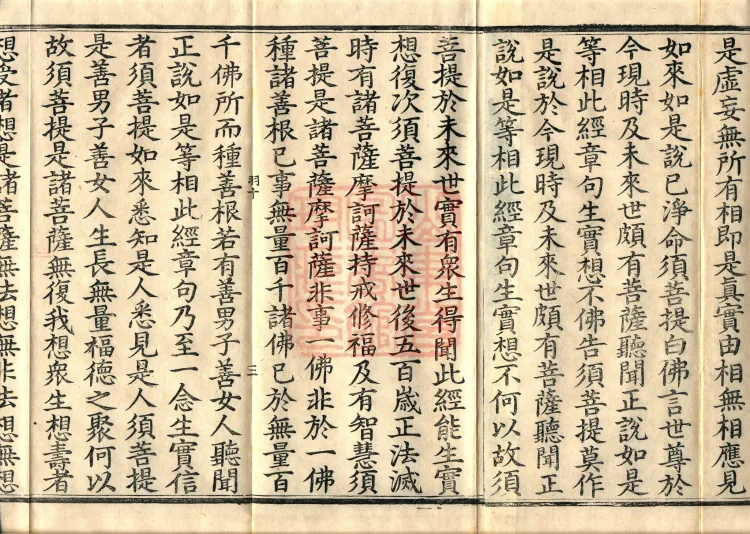 是虛妄無所有相即是真實由相無相應見
如來如是說已淨命須菩提白佛言世尊於
今現時及未來世頗有菩薩聽聞正說如是
等相此經章句生實想不佛告須菩提莫作
是說於今現時及未來世頗有菩薩聽聞正
說如是等相此經章句生實想不何以故須
菩提於未來世實有衆生得聞此經能生實
想復次須菩提於未來世後五百歲正法滅
時有諸菩薩摩訶薩持戒修福及有智慧須
菩提是諸菩薩摩訶薩非事一佛非於一佛
種諸善根已事無量百千諸佛已於無量百
羽十 三
千佛所而種善根若有善男子善女人聽聞
正說如是等相此經章句乃至一念生實信
者須菩提如來悉知是人悉見是人須菩提
是善男子善女人生長無量福德之聚何以
故須菩提是諸菩薩無復我想衆生想壽者
想受者想是諸菩薩無法想無非法想無想